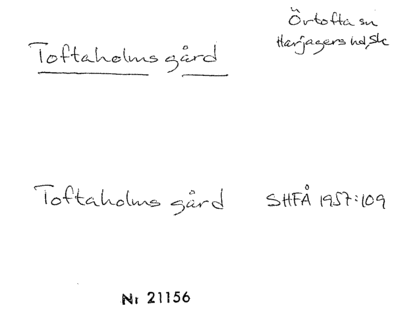 Örtofta sn
Harjagers hd, Sk
Toftaholms gård
Toftaholms gård SHFÅ 1957:109
Nr 21156